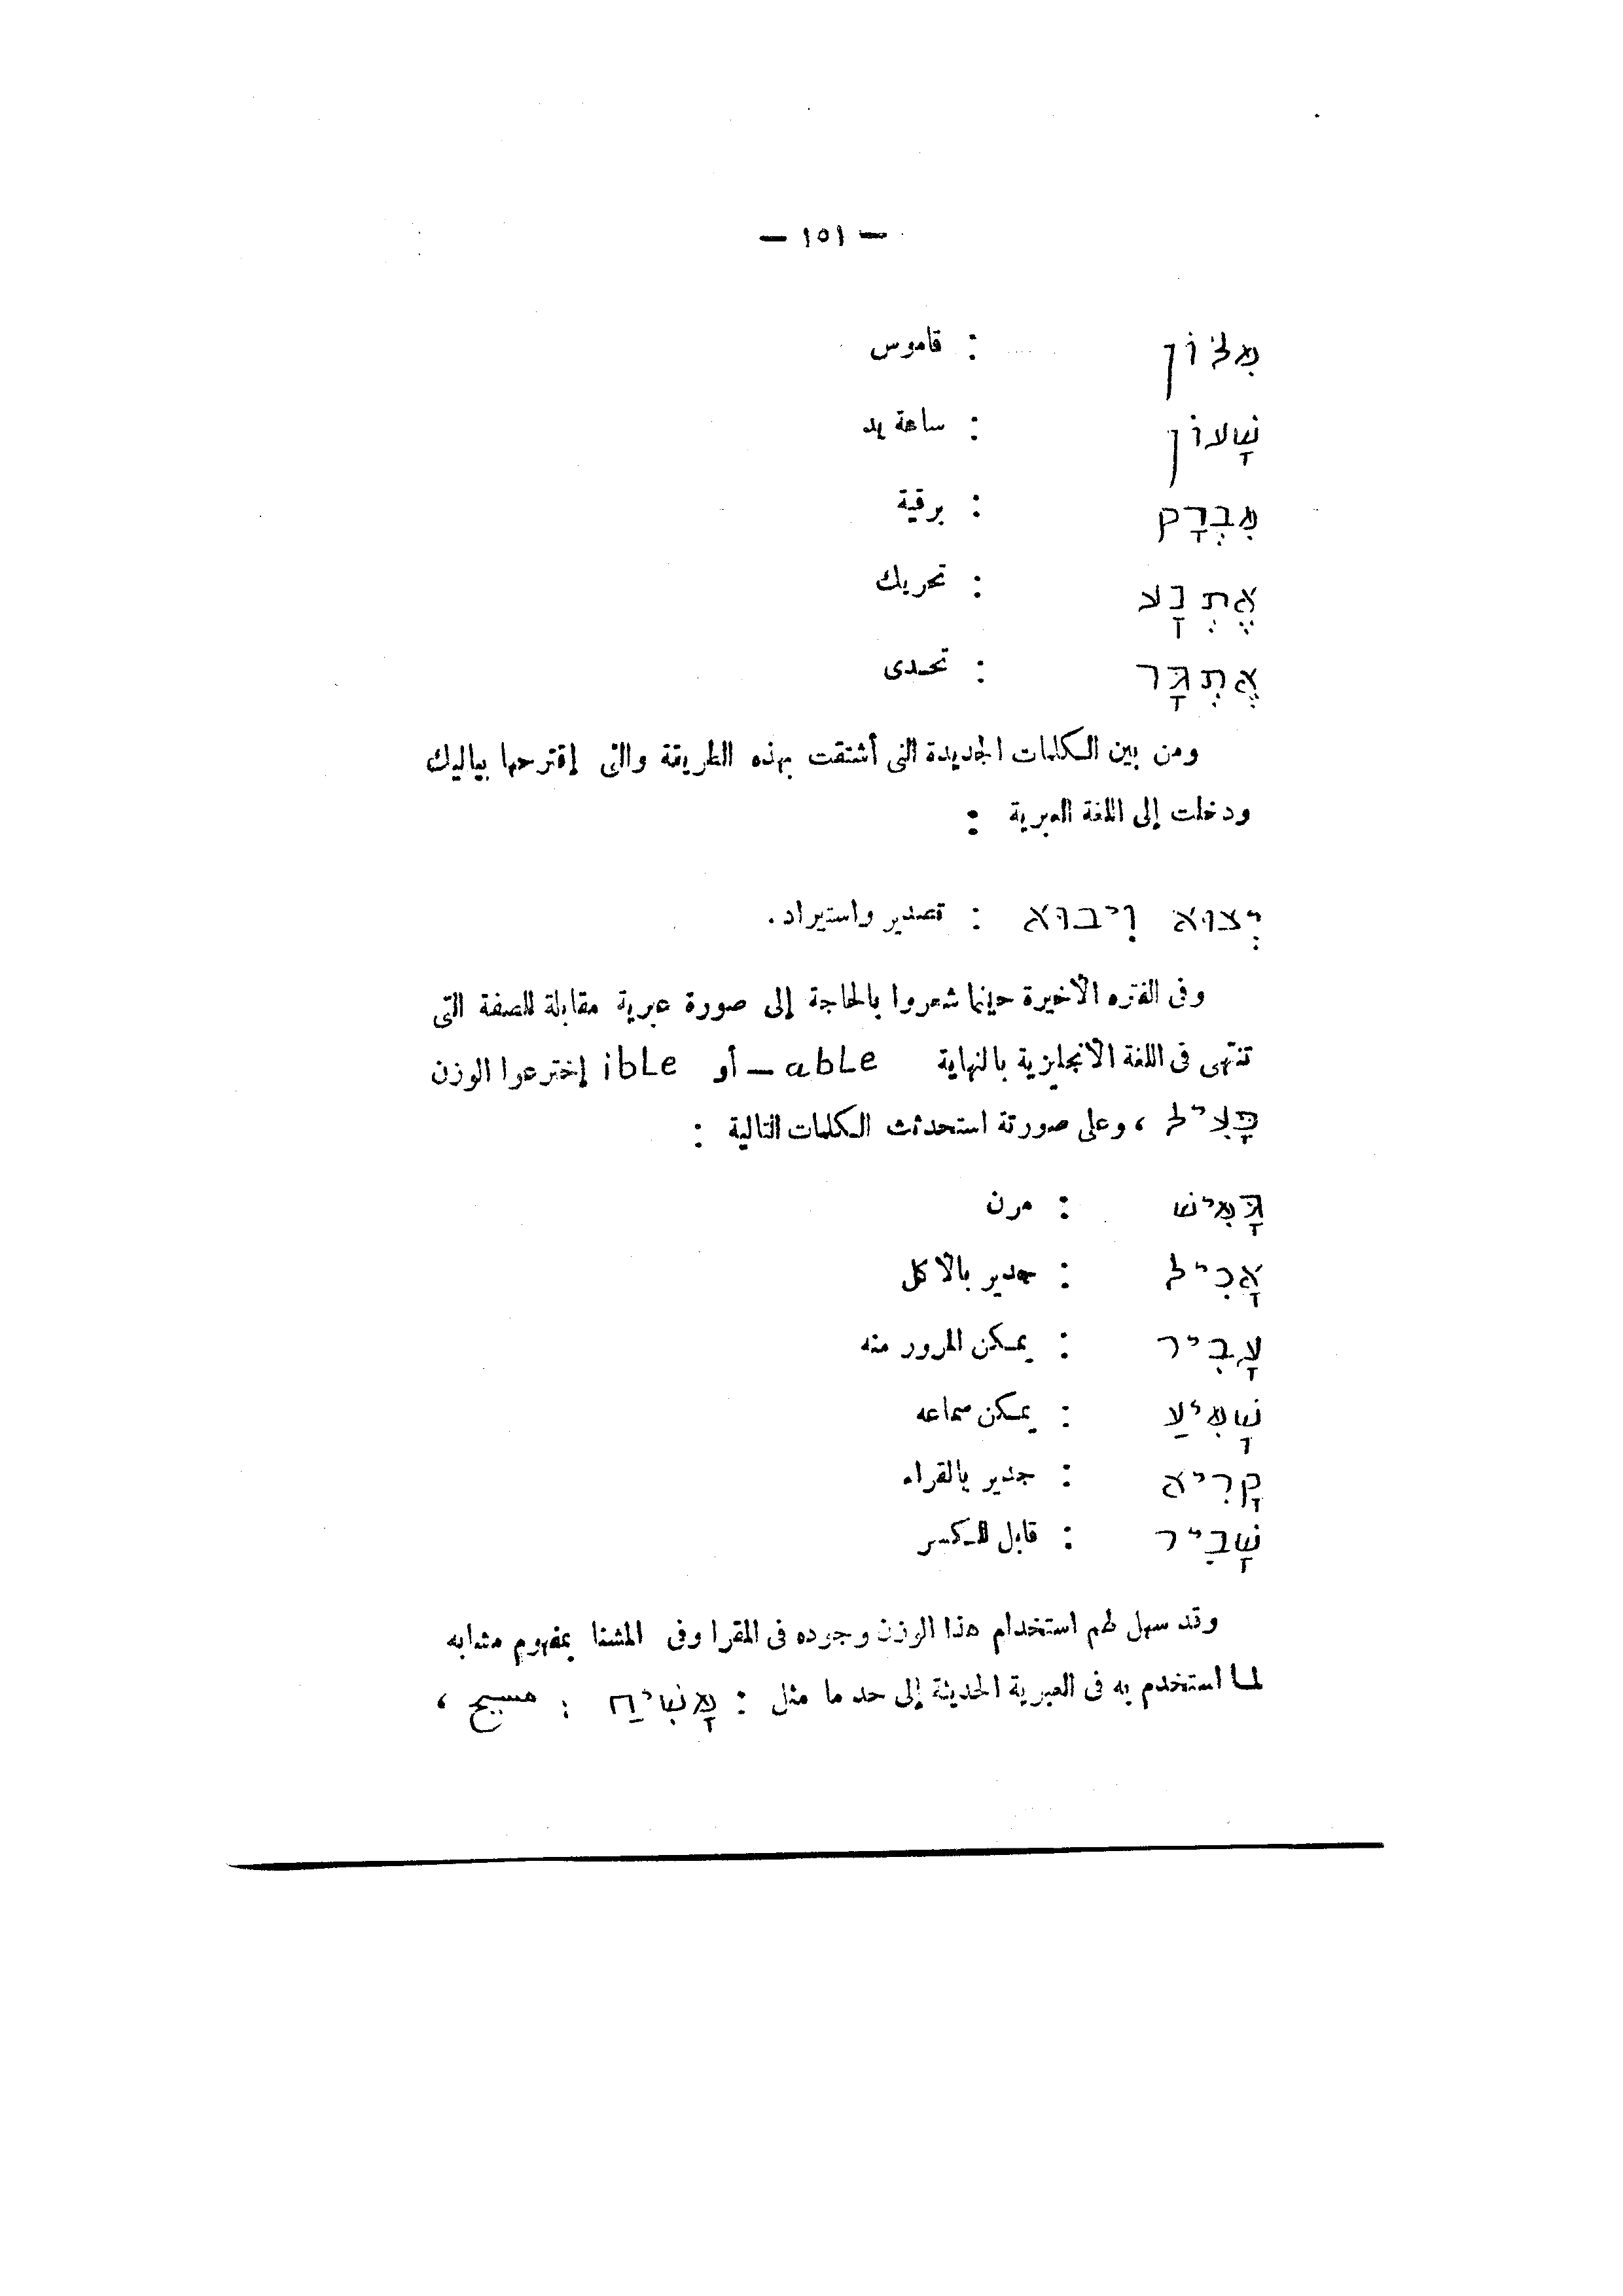 — ١٥١ —
מִלּוֹן : قاموس
שָׁעוֹן : ساعة يد
מִבְרָק : برقية
אֶתְנָע : تحريك
אֶתְגָּר : تحدى
ومن بين الكلمات الجديدة التى أشتقت بهذه الطريقة والتى إقترحها بياليك
ودخلت إلى اللغة العبرية :
יְצוּא וִיבוּא : تصدير واستيراد .
وفى الفتره الأخيرة حينما شعروا بالحاجة إلى صورة عبرية مقابلة للصفة التى
تنتهى فى اللغة الانجليزية بالنهاية able — أو ible إخترعوا الوزن
פָּעִיל ، وعلى صورتة استحدثت الكلمات التالية :
גָּמִישׁ : مرن
אָכִיל : جدير بالأكل
עָבִיר : يمكن المرور منه
שָׁמִיעַ : يمكن سماعه
קָרִיא : جدير بالقراء
שָׁבִיר : قابل للكسر
وقد سهل لهم استخدام هذا الوزن وجوده فى المقرا وفى المشنا بمفهوم مشابه
لما استخدم به فى العبرية الحديثة إلى حد ما مثل : מָשִׁיחַ : مسيح ،